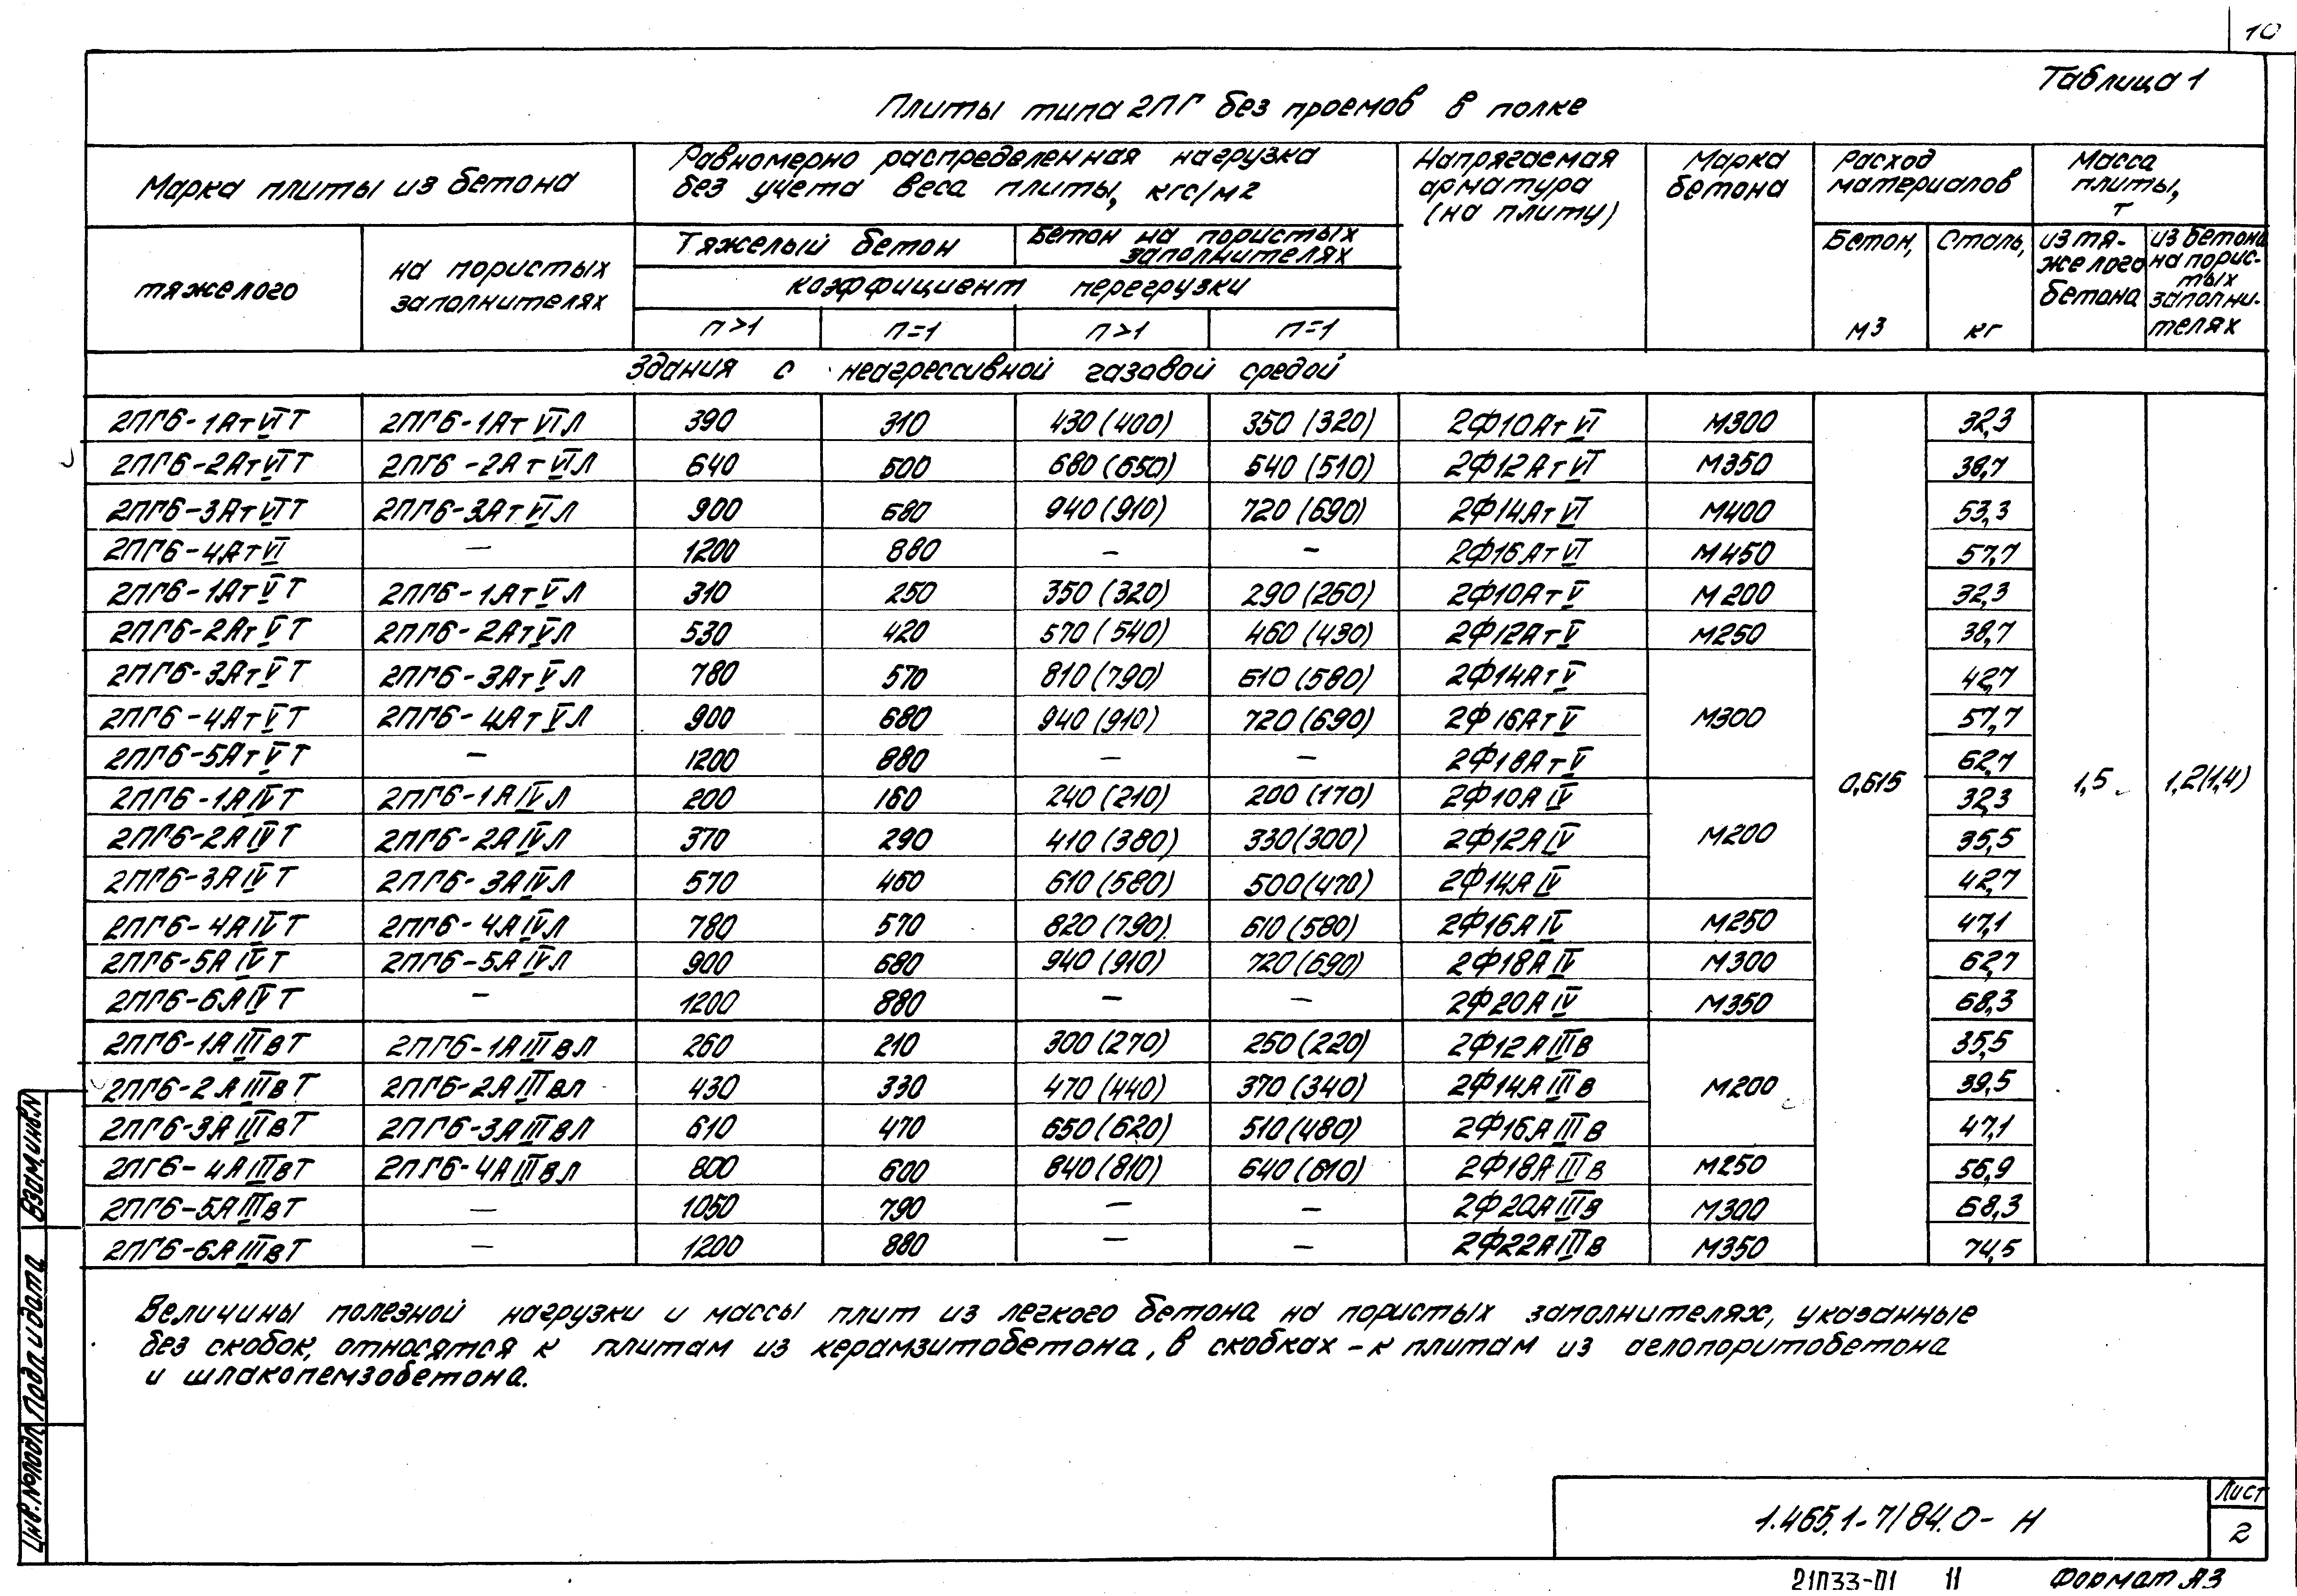 10
Таблица 1
Плиты типа 2ПГ без проемов в полке
Марка плиты из бетона
Равномерно распределенная нагрузка
без учета веса плиты, кгс/м2
Напрягаемая
арматура
(на плиту)
Марка
бетона
Расход
материалов
Масса
плиты,
т
тяжелого
на пористых
заполнителях
Тяжелый бетон
Бетон на пористых
заполнителях
коэффициент перегрузки
п>1 п=1 п>1 п=1
Бетон,
м3
Сталь,
кг
из тя-
желого
бетона
из бетона
на порис-
тых
заполни-
телях
Здания с неагрессивной газовой средой
2ПГ6-1АтVIТ 2ПГ6-1АтVIЛ 390 310 430(400) 350(320) 2Ф10АтVI М300 32,3
2ПГ6-2АтVIТ 2ПГ6-2АтVIЛ 640 500 680(650) 540(510) 2Ф12АтVI М350 38,7
2ПГ6-3АтVIТ 2ПГ6-3АтVIЛ 900 680 940(910) 720(690) 2Ф14АтVI М400 53,3
2ПГ6-4АтVI — 1200 880 — — 2Ф16АтVI М450 57,7
2ПГ6-1АтVТ 2ПГ6-1АтVЛ 310 250 350(320) 290(260) 2Ф10АтV М200 32,3
2ПГ6-2АтVТ 2ПГ6-2АтVЛ 530 420 570(540) 460(430) 2Ф12АтV М250 38,7
2ПГ6-3АтVТ 2ПГ6-3АтVЛ 780 570 810(790) 610(580) 2Ф14АтV 42,7
2ПГ6-4АтVТ 2ПГ6-4АтVЛ 900 680 940(910) 720(690) 2Ф16АтV М300 57,7
2ПГ6-5АтVТ — 1200 880 — — 2Ф18АтV 62,7
2ПГ6-1АIVТ 2ПГ6-1АIVЛ 200 160 240(210) 200(170) 2Ф10АIV 0,615 32,3 1,5 1,2(1,4)
2ПГ6-2АIVТ 2ПГ6-2АIVЛ 370 290 410(380) 330(300) 2Ф12АIV М200 35,5
2ПГ6-3АIVТ 2ПГ6-3АIVЛ 570 460 610(580) 500(470) 2Ф14АIV 42,7
2ПГ6-4АIVТ 2ПГ6-4АIVЛ 780 570 820(790) 610(580) 2Ф16АIV М250 47,1
2ПГ6-5АIVТ 2ПГ6-5АIVЛ 900 680 940(910) 720(690) 2Ф18АIV М300 62,7
2ПГ6-6АIVТ — 1200 880 — — 2Ф20АIV М350 68,3
2ПГ6-1АIIIвТ 2ПГ6-1АIIIвЛ 260 210 300(270) 250(220) 2Ф12АIIIв 35,5
2ПГ6-2АIIIвТ 2ПГ6-2АIIIвЛ 430 330 470(440) 370(340) 2Ф14АIIIв М200 39,5
2ПГ6-3АIIIвТ 2ПГ6-3АIIIвЛ 610 470 650(620) 510(480) 2Ф16АIIIв 47,1
2ПГ6-4АIIIвТ 2ПГ6-4АIIIвЛ 800 600 840(810) 640(610) 2Ф18АIIIв М250 56,9
2ПГ6-5АIIIвТ — 1050 790 — — 2Ф20АIIIв М300 68,3
2ПГ6-6АIIIвТ — 1200 880 — — 2Ф22АIIIв М350 74,5
Величины полезной нагрузки и массы плит из легкого бетона на пористых заполнителях, указанные
без скобок, относятся к плитам из керамзитобетона, в скобках - к плитам из аглопоритобетона
и шлакопемзобетона.
Взам.инв.N
Подп. и дата
Инв.№подл.
1.465.1-7/84.0-Н
Лист
2
21033-01 11 Формат А3